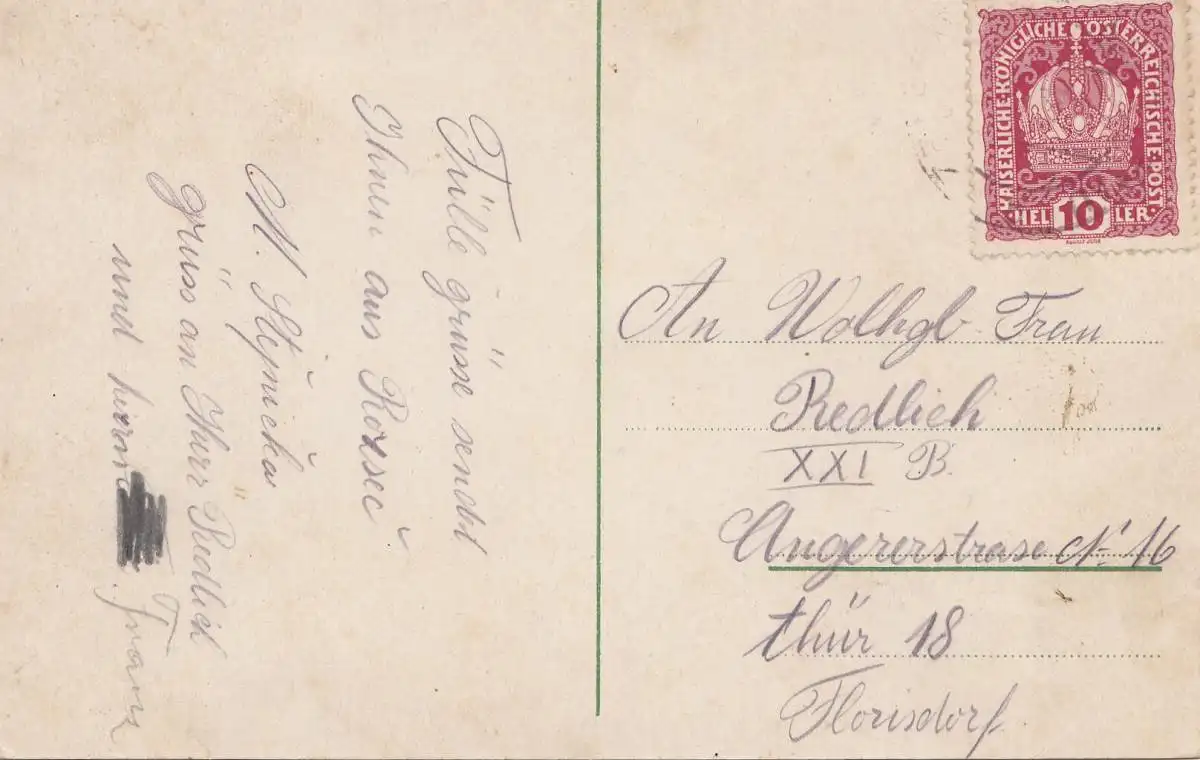 Fülle grüsse sendet
Ihnen aus Rozseč
M. Stejnička
grüss an Ihrr Redlich
und
Franz
KAISERLICHE·KÖNIGLICHE ÖSTERREICHISCHE·POST
HEL 10 LER
An Wolhgb Frau
Redlich
XXI B.
Angererstrase No 16
thür 18
Florisdorf